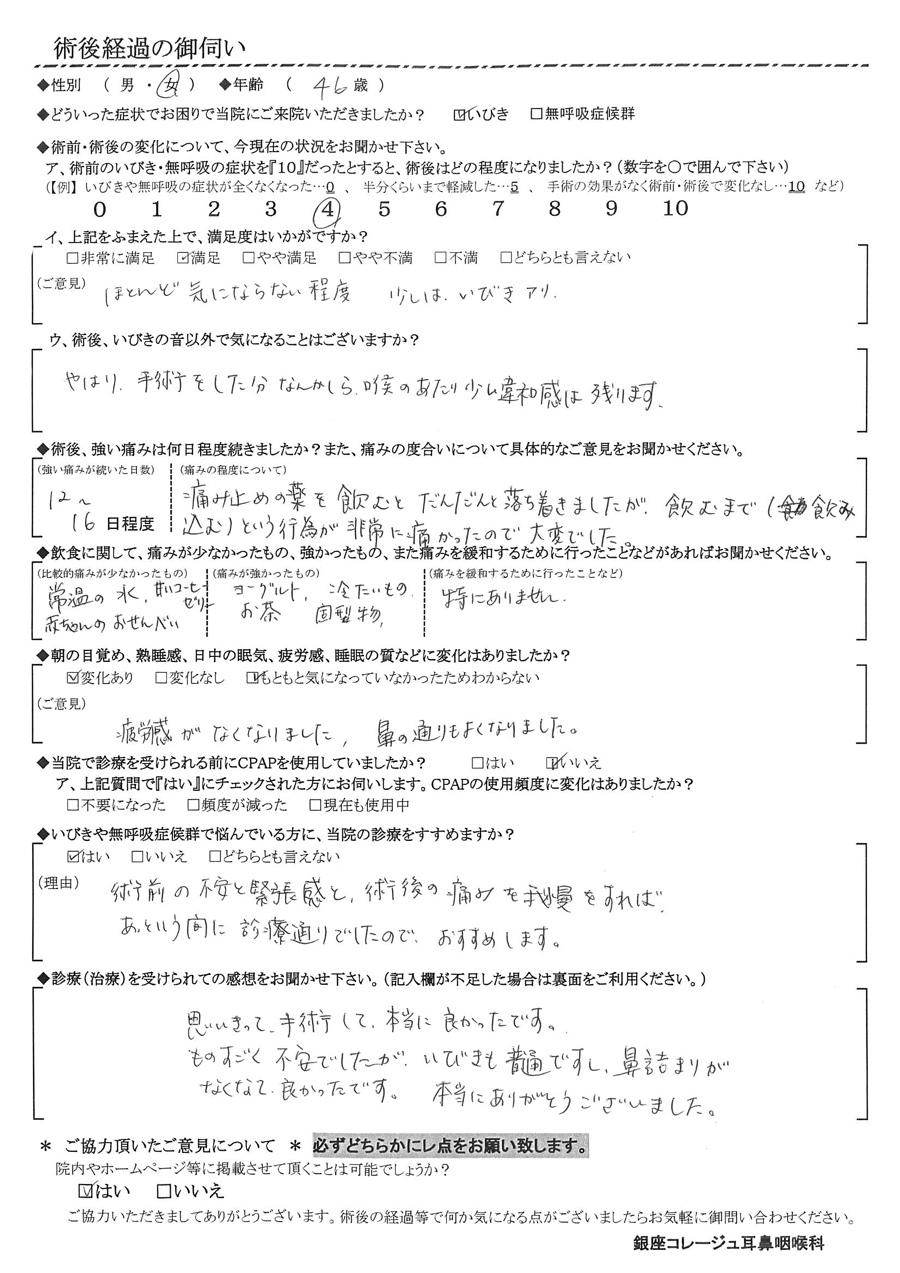 術後経過の御伺い
◆性別 ( 男 ・ 女 ) ◆年齢 ( 46 歳 )
◆どういった症状でお困りで当院にご来院いただきましたか? ☑いびき □無呼吸症候群
◆術前・術後の変化について、今現在の状況をお聞かせ下さい。
ア、術前のいびき・無呼吸の症状を『10』だったとすると、術後はどの程度になりましたか?(数字を○で囲んで下さい)
(【例】 いびきや無呼吸の症状が全くなくなった…0 、 半分くらいまで軽減した…5 、 手術の効果がなく術前・術後で変化なし…10 など)
0 1 2 3 4 5 6 7 8 9 10
イ、上記をふまえた上で、満足度はいかがですか?
□非常に満足 ☑満足 □やや満足 □やや不満 □不満 □どちらとも言えない
(ご意見) ほとんど気にならない程度 少しは、いびきアリ.
ウ、術後、いびきの音以外で気になることはございますか?
やはり、手術をした分なんかしら、喉のあたり少し違和感は残ります。
◆術後、強い痛みは何日程度続きましたか?また、痛みの度合いについて具体的なご意見をお聞かせください。
(強い痛みが続いた日数) (痛みの程度について)
12〜 痛み止めの薬を飲むとだんだんと落ち着きましたが、飲むまで(飲み
16 日程度 込む)という行為が非常に痛かったので大変でした。
◆飲食に関して、痛みが少なかったもの、強かったもの、また痛みを緩和するために行ったことなどがあればお聞かせください。
(比較的痛みが少なかったもの) (痛みが強かったもの) (痛みを緩和するために行ったことなど)
常温の水、甘いコーヒーゼリー ヨーグルト、冷たいもの 特にありません.
赤ちゃんのおせんべい お茶 固型物,
◆朝の目覚め、熟睡感、日中の眠気、疲労感、睡眠の質などに変化はありましたか?
☑変化あり □変化なし ☑もともと気になっていなかったためわからない
(ご意見)
疲労感がなくなりました, 鼻の通りもよくなりました。
◆当院で診療を受けられる前にCPAPを使用していましたか? □はい ☑いいえ
ア、上記質問で『はい』にチェックされた方にお伺いします。CPAPの使用頻度に変化はありましたか?
□不要になった □頻度が減った □現在も使用中
◆いびきや無呼吸症候群で悩んでいる方に、当院の診療をすすめますか?
☑はい □いいえ □どちらとも言えない
(理由) 術前の不安と緊張感と、術後の痛みを我慢をすれば、
あっという間に診療通りでしたので、おすすめします。
◆診療(治療)を受けられての感想をお聞かせ下さい。(記入欄が不足した場合は裏面をご利用ください。)
思いきって、手術して、本当に良かったです。
ものすごく不安でしたが、いびきも普通ですし、鼻詰まりが
なくなって、良かったです。 本当にありがとうございました。
* ご協力頂いたご意見について * 必ずどちらかにレ点をお願い致します。
院内やホームページ等に掲載させて頂くことは可能でしょうか?
☑はい □いいえ
ご協力いただきましてありがとうございます。術後の経過等で何か気になる点がございましたらお気軽に御問い合わせください。
銀座コレージュ耳鼻咽喉科